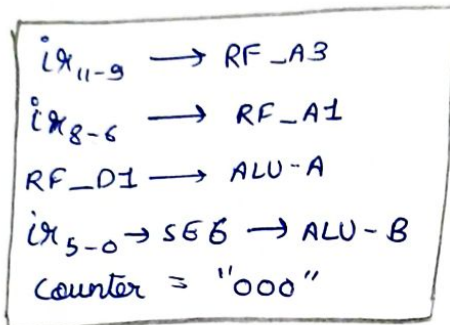 ir₁₁₋₉ → RF_A3
ir₈₋₆ → RF_A1
RF_D1 → ALU-A
ir₅₋₀ → SE6 → ALU-B
Counter = "000"